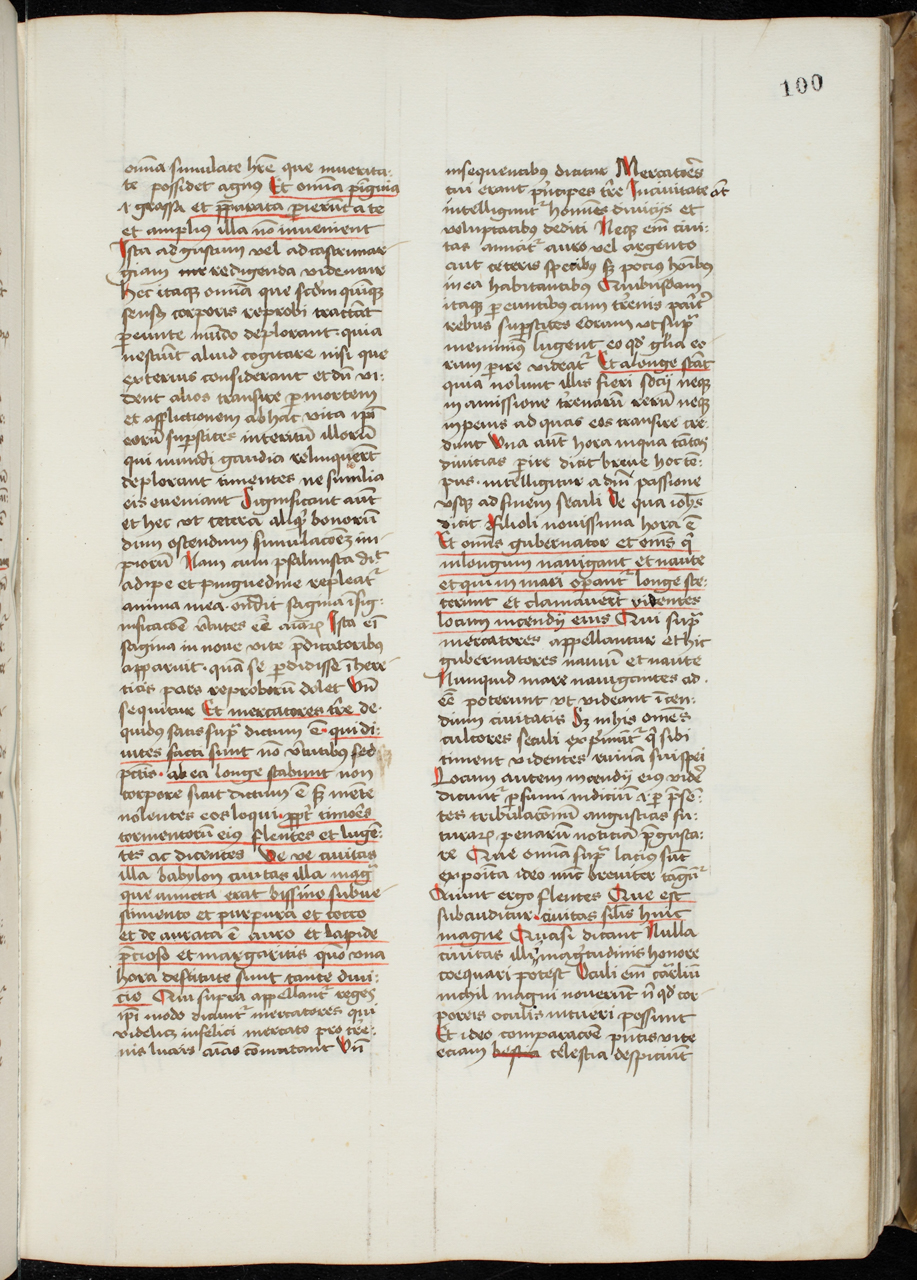 100
omīa simulate hr̄e que in uerita-
te possidet agnus Et omīa pīnguia
⁊ grossa et p̄parata perierūt a te
et amplius illa nō inuenient
Ista ad gustum vel ad castrimar
giam redigenda videntur
Hec itaqꝫ omīa que scd̄m qūqꝫ
sensus corporis reprobi tractāt
pereunte mūdo deplorant· quia
nesciūt aliud cogitare nisi que
exterius considerant et dū vi-
dent alios transire per mortem
et afflictionem ab hac vita ip̄i
eorū superstites interitū illorū
qui mundi gaudia relinquerūt
deplorant timentes ne similia
eis eueniant Significant aūt
et hec vt cetera bonorū
dium ostendum simulacōēꝫ im-
piorū Nam cum psalmista dic̄
adipe et pinguedine repleatr̄
anima mea· ondit sagina ī sig-
nificacōe v̄tutes eē aīaꝝ Ista em̄
sagina in noue vite p̄dicatoribus
apparuit· quā se perdidisse ī here
ticis pars reproborū dolet Vn̄
sequitur Et mercatores tr̄re de-
quibꝰ satis supᷓ dictum ē· qui di-
uites facti sunt nō v̄tutibus sed
pctīs· ab ea longe stabunt non
corpore sicut dictum ē sꝫ mēte
nolentes eos loqui· ꝓpt̄ timorēs
tormentorū eius flentes et lugē-
tes ac dicentes Ve ve ciuitas
illa babylon ciuitas illa magᷓ
que amicta erat bissino subue
stimento et purpura et cocco
et de aurata ē auro et lapide
p̄cioso et margaritis quō vna
hora destitute sunt tante diui-
cie Qui supra appellant̄ reges
ip̄i modo dicunt̄ mercatores qui
videlicꝫ infelici mercato pro t̄re-
nis lucris aīas cōmutant Vn̄
insequentibus dicitur Mercatōres
tui erant pīcipes tr̄re In ciuitate
intelligunt̄ homīes diuicijs et
voluptatibus dediti Neqꝫ em̄ ciui-
tas amicit̄ auro vel argento
aut ceteris speciebꝰ sꝫ pocius hoībꝰ
in ea habitantibus Quibusdam
itaqꝫ pereuntibus cum t̄renis
rebus superstites eorum vt supᷓ
meminimꝰ lugent eo qd̄ gl̄ia eo
rum perire videat̄ Et a longe stāt
quia nolunt illis fieri socij neqꝫ
in amissione t̄renarū rerū neqꝫ
in penis ad quas eos transire cre
dunt Vna aūt hora in qua tātas
diuitias perire dicit breue hoc tē-
pus· intelligitur a dn̄i passione
vsqꝫ ad finem seculi De qua ioh̄s
dicit Filioli nouissima hora ē
Et omīs gubernator et om̄s qⁱ
in longum nauigant et naute
et qui in mari operant̄ longe ste-
terunt et clamauerūt videntes
locum incendij eius Qui supᷓ
mercatores appellantur et hic
gubernatores nauiū et naute
Nunquid mare nauigantes ad-
eē poterunt vt videant ī cen-
dium ciuitatis Sꝫ in his omēs
cultores seculi exp̄munt̄ qⁱ sibi
timent videntes ruinam sue spei
Locum autem incendij eius videre
dicunt̄ per sumi iudiciū ⁊ per p̄sen-
tes tribulacōnū angustias fu-
turaꝝ penarū noticiā p̄gusta-
re Que omīa supᷓ lacius sūt
exposita ideo nūc breuiter tangūt̄
Aiunt ergo flentes Que est
subauditur· ciuitas sil̄is huic
magne Quasi dicant Nulla
ciuitas illiꝰ magtudinis honore
coequari potest Oculi em̄ carliū
nichil magni nouerūt n̄ qd̄ cor-
poreis oculis intueri possunt
Et ideo comparacōe pn̄tis vite
eciam celestia despiciūt